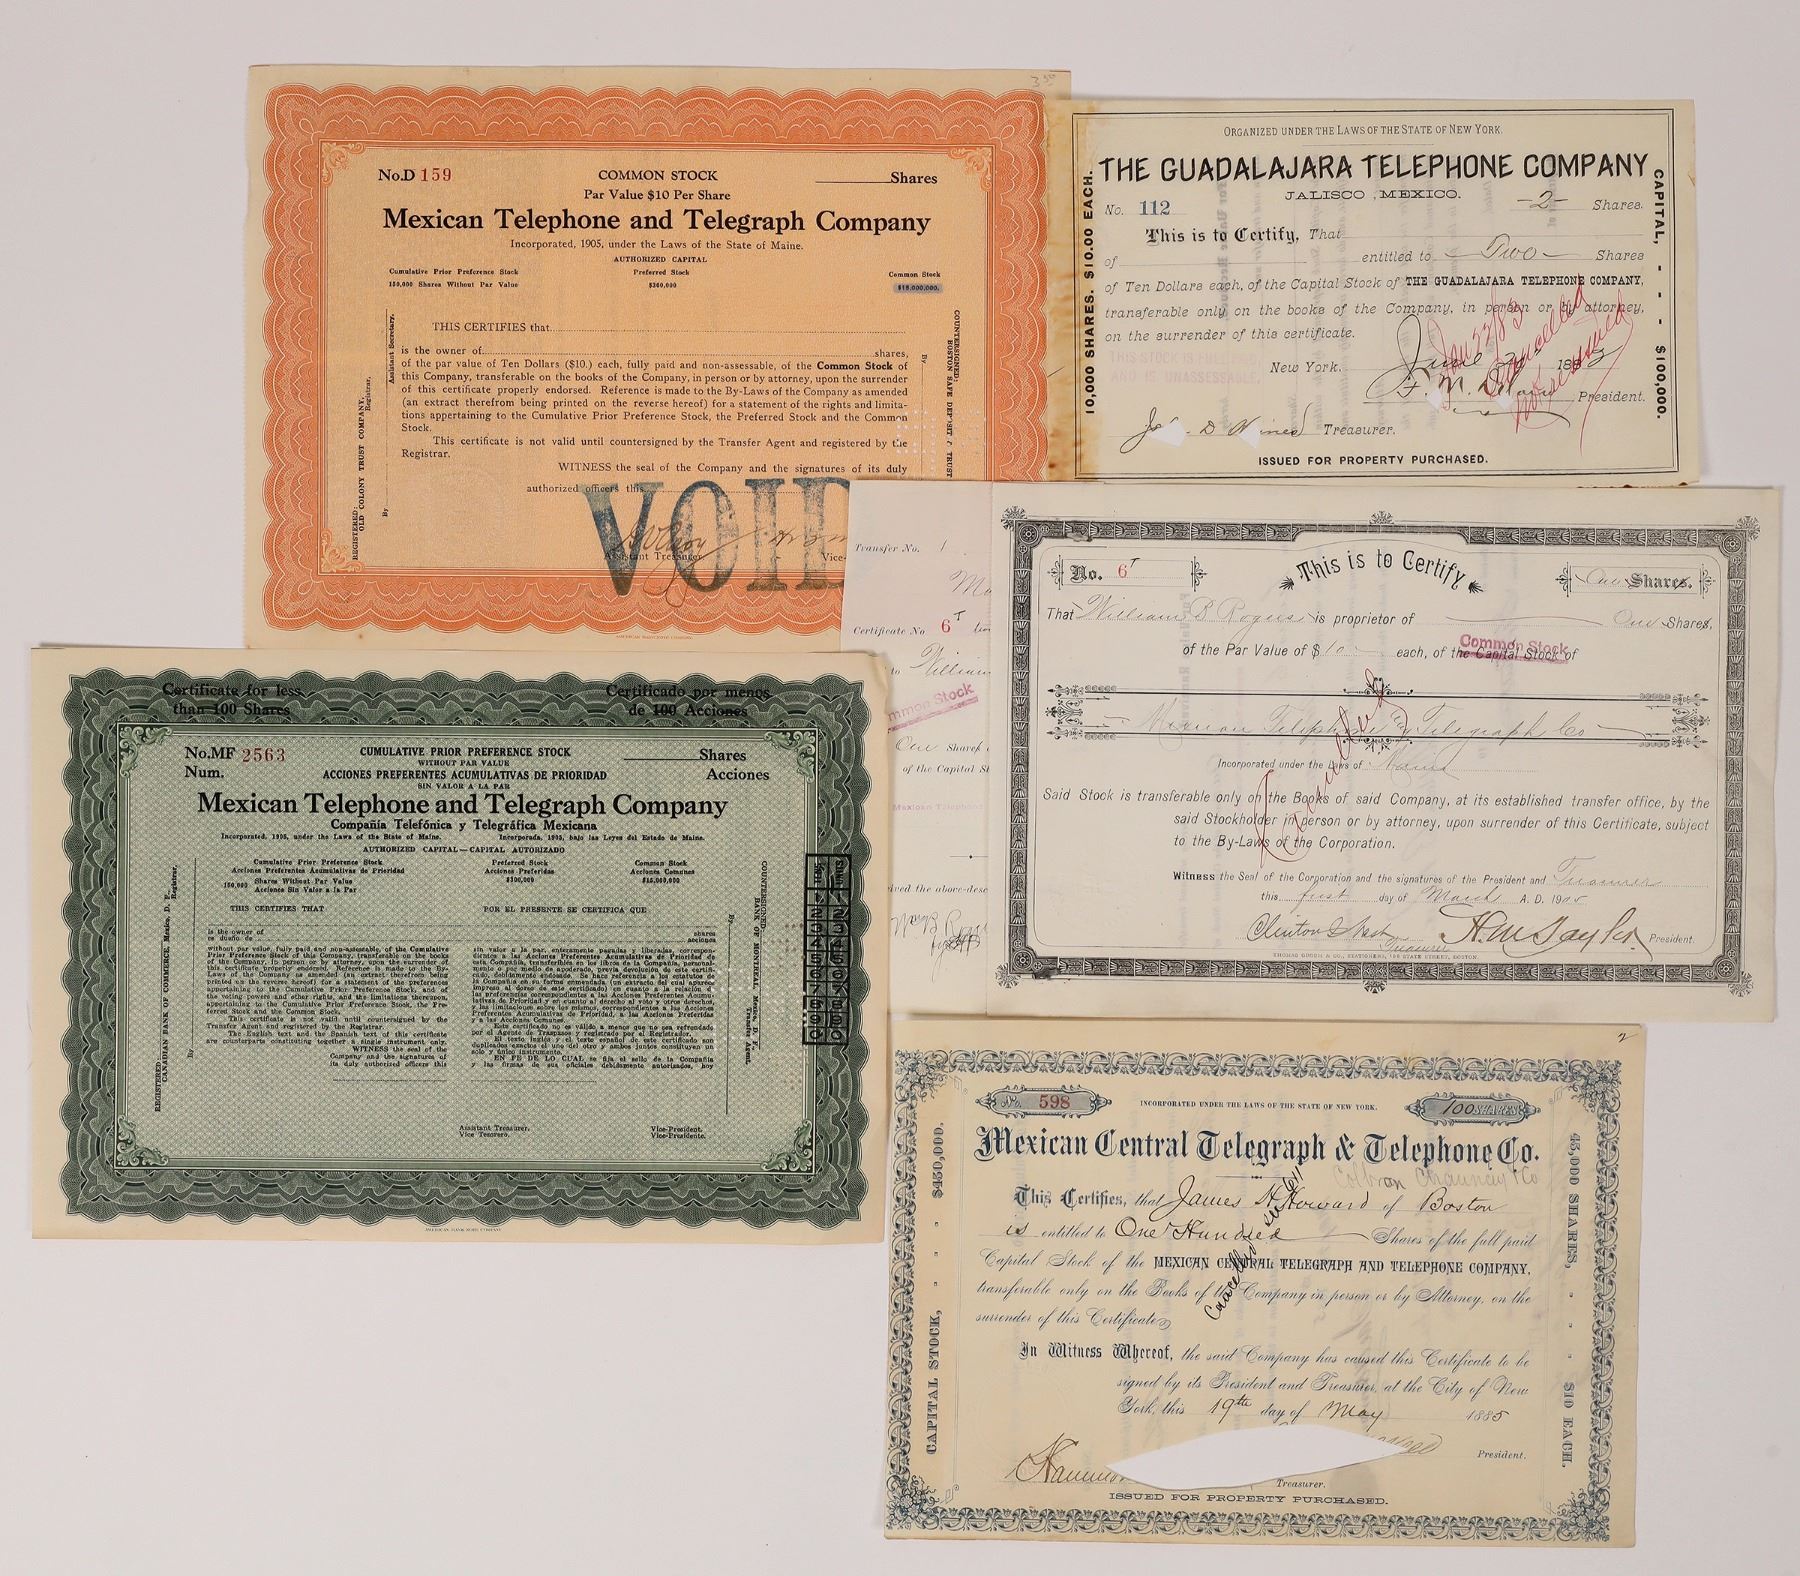 3 50
No.D 159
COMMON STOCK
Shares
Par Value $10 Per Share
Mexican Telephone and Telegraph Company
Incorporated, 1905, under the Laws of the State of Maine.
AUTHORIZED CAPITAL
Cumulative Prior Preference Stock
150,000 Shares Without Par Value
Preferred Stock
$300,000
Common Stock
$15,000,000.
THIS CERTIFIES that
is the owner of shares,
of the par value of Ten Dollars ($10.) each, fully paid and non-assessable, of the Common Stock of
this Company, transferable on the books of the Company, in person or by attorney, upon the surrender
of this certificate properly endorsed. Reference is made to the By-Laws of the Company as amended
(an extract therefrom being printed on the reverse hereof) for a statement of the rights and limita-
tions appertaining to the Cumulative Prior Preference Stock, the Preferred Stock and the Common
Stock.
This certificate is not valid until countersigned by the Transfer Agent and registered by the
Registrar.
WITNESS the seal of the Company and the signatures of its duly
authorized officers this
VOID
Assistant Treasurer
Vice-
REGISTERED:
OLD COLONY TRUST COMPANY,
Registrar,
By
Assistant Secretary.
COUNTERSIGNED:
BOSTON SAFE DEPOSIT & TRUST
By
AMERICAN BANKNOTE COMPANY.
ORGANIZED UNDER THE LAWS OF THE STATE OF NEW YORK.
THE GUADALAJARA TELEPHONE COMPANY
JALISCO, MEXICO.
No. 112
-2- Shares.
This is to Certify, That
of entitled to Two Shares
of Ten Dollars each, of the Capital Stock of THE GUADALAJARA TELEPHONE COMPANY,
transferable only on the books of the Company, in person or by attorney,
on the surrender of this certificate.
THIS STOCK IS FULL PAID,
AND IS UNASSESSABLE.
New York. June 188
President.
Treasurer.
Cancelled
ISSUED FOR PROPERTY PURCHASED.
10,000 SHARES. $10.00 EACH.
CAPITAL, - - - $100,000.
Transfer No. 1
Certificate No 6
to William
Common Stock
One Share
of the Capital St
Mexican Telephone
ived the above-desc
No. 6
This is to Certify
One Shares.
That William B Rogers is proprietor of One Shares,
of the Par Value of $10 each, of the Capital Stock of
Common Stock
Mexican Telephone & Telegraph Co
Cancelled
Incorporated under the Laws of Maine
Said Stock is transferable only on the Books of said Company, at its established transfer office, by the
said Stockholder in person or by attorney, upon surrender of this Certificate, subject
to the By-Laws of the Corporation.
Witness the Seal of the Corporation and the signatures of the President and Treasurer
this first day of March A. D. 190
Treasurer
President.
THOMAS GROOM & CO., STATIONERS, 105 STATE STREET, BOSTON.
Certificate for less
than 100 Shares
Certificado por menos
de 100 Acciones
No.MF 2563
Num.
CUMULATIVE PRIOR PREFERENCE STOCK
WITHOUT PAR VALUE
ACCIONES PREFERENTES ACUMULATIVAS DE PRIORIDAD
SIN VALOR A LA PAR
Shares
Acciones
Mexican Telephone and Telegraph Company
Compañia Telefónica y Telegráfica Mexicana
Incorporated, 1905, under the Laws of the State of Maine.
Incorporada, 1905, bajo las Leyes del Estado de Maine.
AUTHORIZED CAPITAL—CAPITAL AUTORIZADO
Cumulative Prior Preference Stock
Acciones Preferentes Acumulativas de Prioridad
150,000 Shares Without Par Value
Acciones Sin Valor a la Par
Preferred Stock
Acciones Preferidas
$300,000
Common Stock
Acciones Comunes
$15,000,000
THIS CERTIFIES THAT
POR EL PRESENTE SE CERTIFICA QUE
is the owner of
es dueño de
shares
acciones
without par value, fully paid and non-assessable, of the Cumulative
Prior Preference Stock of this Company, transferable on the books
of the Company, in person or by attorney, upon the surrender of
this certificate properly endorsed. Reference is made to the By-
Laws of the Company as amended (an extract therefrom being
printed on the reverse hereof) for a statement of the preferences
appertaining to the Cumulative Prior Preference Stock, and of
the voting powers and other rights, and the limitations thereupon,
appertaining to the Cumulative Prior Preference Stock, the Pre-
ferred Stock and the Common Stock.
This certificate is not valid until countersigned by the
Transfer Agent and registered by the Registrar.
The English text and the Spanish text of this certificate
are counterparts constituting together a single instrument only.
WITNESS the seal of the
Company and the signatures of
its duly authorized officers this
sin valor a la par, enteramente pagadas y liberadas, correspon-
dientes a las Acciones Preferentes Acumulativas de Prioridad de
esta Compañía, transferibles en los libros de la Compañía, personal-
mente o por medio de apoderado, previa devolución de este certifi-
cado, debidamente endosado. Se hace referencia a los estatutos de
la Compañía en su forma enmendada (un extracto del cual aparece
impreso al dorso de este certificado) en cuanto a la relación de
las preferencias correspondientes a las Acciones Preferentes Acumu-
lativas de Prioridad y en cuanto al derecho al voto y otros derechos,
y las limitaciones sobre los mismos, correspondientes a las Acciones
Preferentes Acumulativas de Prioridad, a las Acciones Preferidas
y a las Acciones Comunes.
Este certificado no es válido a menos que no sea refrendado
por el Agente de Traspasos y registrado por el Registrador.
El texto inglés y el texto español de este certificado son
duplicados exactos el uno del otro y ambos juntos constituyen un
solo y único instrumento.
EN FE DE LO CUAL se fija el sello de la Compañía
y las firmas de sus oficiales debidamente autorizados, hoy
Assistant Treasurer.
Vice Tesorero.
Vice-President.
Vice-Presidente.
REGISTERED:
CANADIAN BANK OF COMMERCE, Mexico, D. F.
Registrar.
By
COUNTERSIGNED:
BANK OF MONTREAL, Mexico, D. F.,
Transfer Agent.
By
TENS UNITS
1 1
2 2
3 3
4 4
5 5
6 6
7 7
8 8
9 9
0 0
AMERICAN BANK NOTE COMPANY.
2
No. 598
INCORPORATED UNDER THE LAWS OF THE STATE OF NEW YORK.
100 SHARES
Mexican Central Telegraph & Telephone Co.
This Certifies, that James H Howard of Boston
is entitled to One Hundred Shares of the full paid
Capital Stock of the MEXICAN CENTRAL TELEGRAPH AND TELEPHONE COMPANY,
transferable only on the Books of the Company in person or by Attorney, on the
surrender of this Certificate
Cancelled
In Witness Whereof, the said Company has caused this Certificate to be
signed by its President and Treasurer, at the City of New
York, this 19th day of May 1885
President.
Treasurer.
ISSUED FOR PROPERTY PURCHASED.
CAPITAL STOCK, - - - $450,000.
45,000 SHARES, - - - $10 EACH.